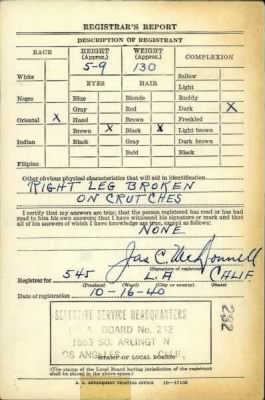 REGISTRAR'S REPORT
DESCRIPTION OF REGISTRANT
RACE HEIGHT (Approx.) WEIGHT (Approx.) COMPLEXION
5-9 130
White EYES HAIR Sallow
Light
Negro Blue Blonde Ruddy
Gray Red Dark X
Oriental X Hazel Brown Freckled
Brown X Black X Light brown
Indian Black Gray Dark brown
Bald Black
Filipino
Other obvious physical characteristics that will aid in identification
RIGHT LEG BROKEN
ON CRUTCHES
I certify that my answers are true; that the person registered has read or has had
read to him his own answers; that I have witnessed his signature or mark and that
all of his answers of which I have knowledge are true, except as follows:
NONE
Jas C. McDonnell
(Signature of registrar)
Registrar for 545 L.A. CALIF.
(Precinct) (Ward) (City or county) (State)
Date of registration 10-16-40
SELECTIVE SERVICE HEADQUARTERS
BOARD No. 232
SO. ARLINGTON
LOS ANGELES CALIF.
232
STAMP OF LOCAL BOARD
(The stamp of the Local Board having jurisdiction of the registrant
shall be placed in the above space.)
U. S. GOVERNMENT PRINTING OFFICE